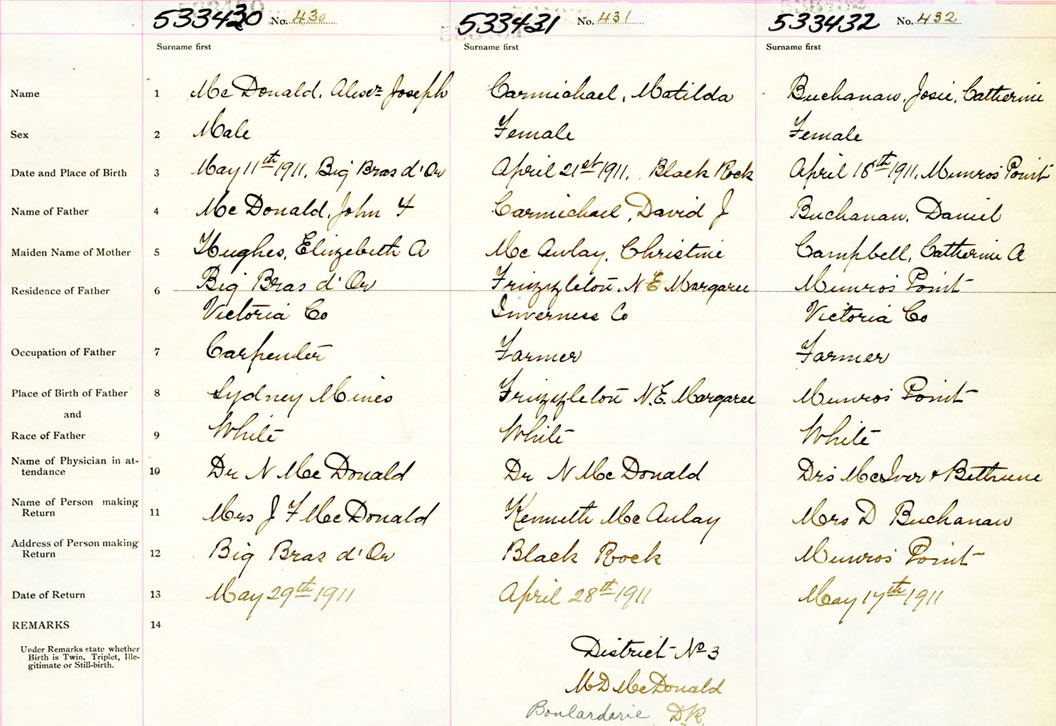 533430 No. 430 533431 No. 431 533432 No. 432
Surname first Surname first Surname first
Name 1 McDonald, Alexr Joseph Carmichael, Matilda Buchanan, Josie, Catherine
Sex 2 Male Female Female
Date and Place of Birth 3 May 11th 1911, Big Bras d'Or April 21st 1911, Black Rock April 18th 1911, Munros Point
Name of Father 4 McDonald, John F Carmichael, David J Buchanan, Daniel
Maiden Name of Mother 5 Hughes, Elizebeth A McAulay, Christine Campbell, Catherine A
Residence of Father 6 Big Bras d'Or Frizzleton, N.E. Margaree Munros Point
Victoria Co Inverness Co Victoria Co
Occupation of Father 7 Carpenter Farmer Farmer
Place of Birth of Father 8 Sydney Mines Frizzleton N.E. Margaree Munros Point
and
Race of Father 9 White White White
Name of Physician in at-
tendance 10 Dr N McDonald Dr N McDonald Drs McIver & Bethune
Name of Person making
Return 11 Mrs J F McDonald Kenneth McAulay Mrs D Buchanan
Address of Person making
Return 12 Big Bras d'Or Black Rock Munros Point
Date of Return 13 May 29th 1911 April 28th 1911 May 17th 1911
REMARKS 14
Under Remarks state whether
Birth is Twin, Triplet, Ille-
gitimate or Still-birth.
District No 3
M D McDonald
Boulardarie D.R.